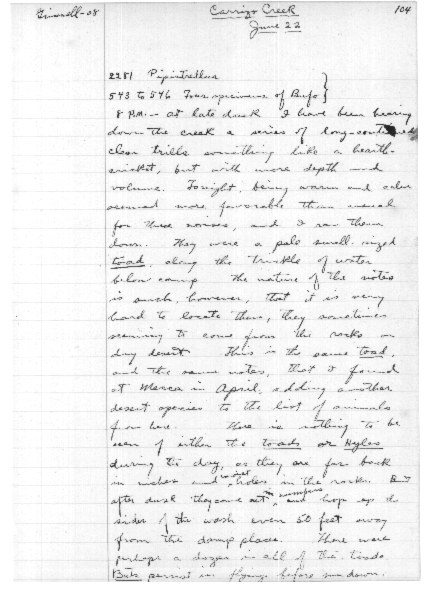 Grinnell-08
Carrizo Creek
104
June 22
2281 Pipistrellus
543 to 546 Four specimens of Bufo
8 P.M. - at late dusk I have been hearing
down the creek a series of long-continued
clear trills something like a hearth-
cricket, but with more depth and
volume. Tonight, being warm and calm
seemed more favorable than usual
for these noises, and I ran them
down. They were a pale small-sized
toad, along the trickle of water
below camp. The nature of the notes
is such, however, that it is very
hard to locate them, they sometimes
seeming to come from the rocks on
dry desert. This is the same toad,
and the same notes, that I found
at Mecca in April, adding another
desert species to the list of animals
from here. There is nothing to be
seen of either the toads or Hylas
during the day, as they are far back
in niches and wet holes in the rocks. But
after dusk they come out in numbers and hop up the
sides of the wash even 50 feet away
from the damp place. There were
perhaps a dozen in all of the toads.
Bats persist in flying before sundown.